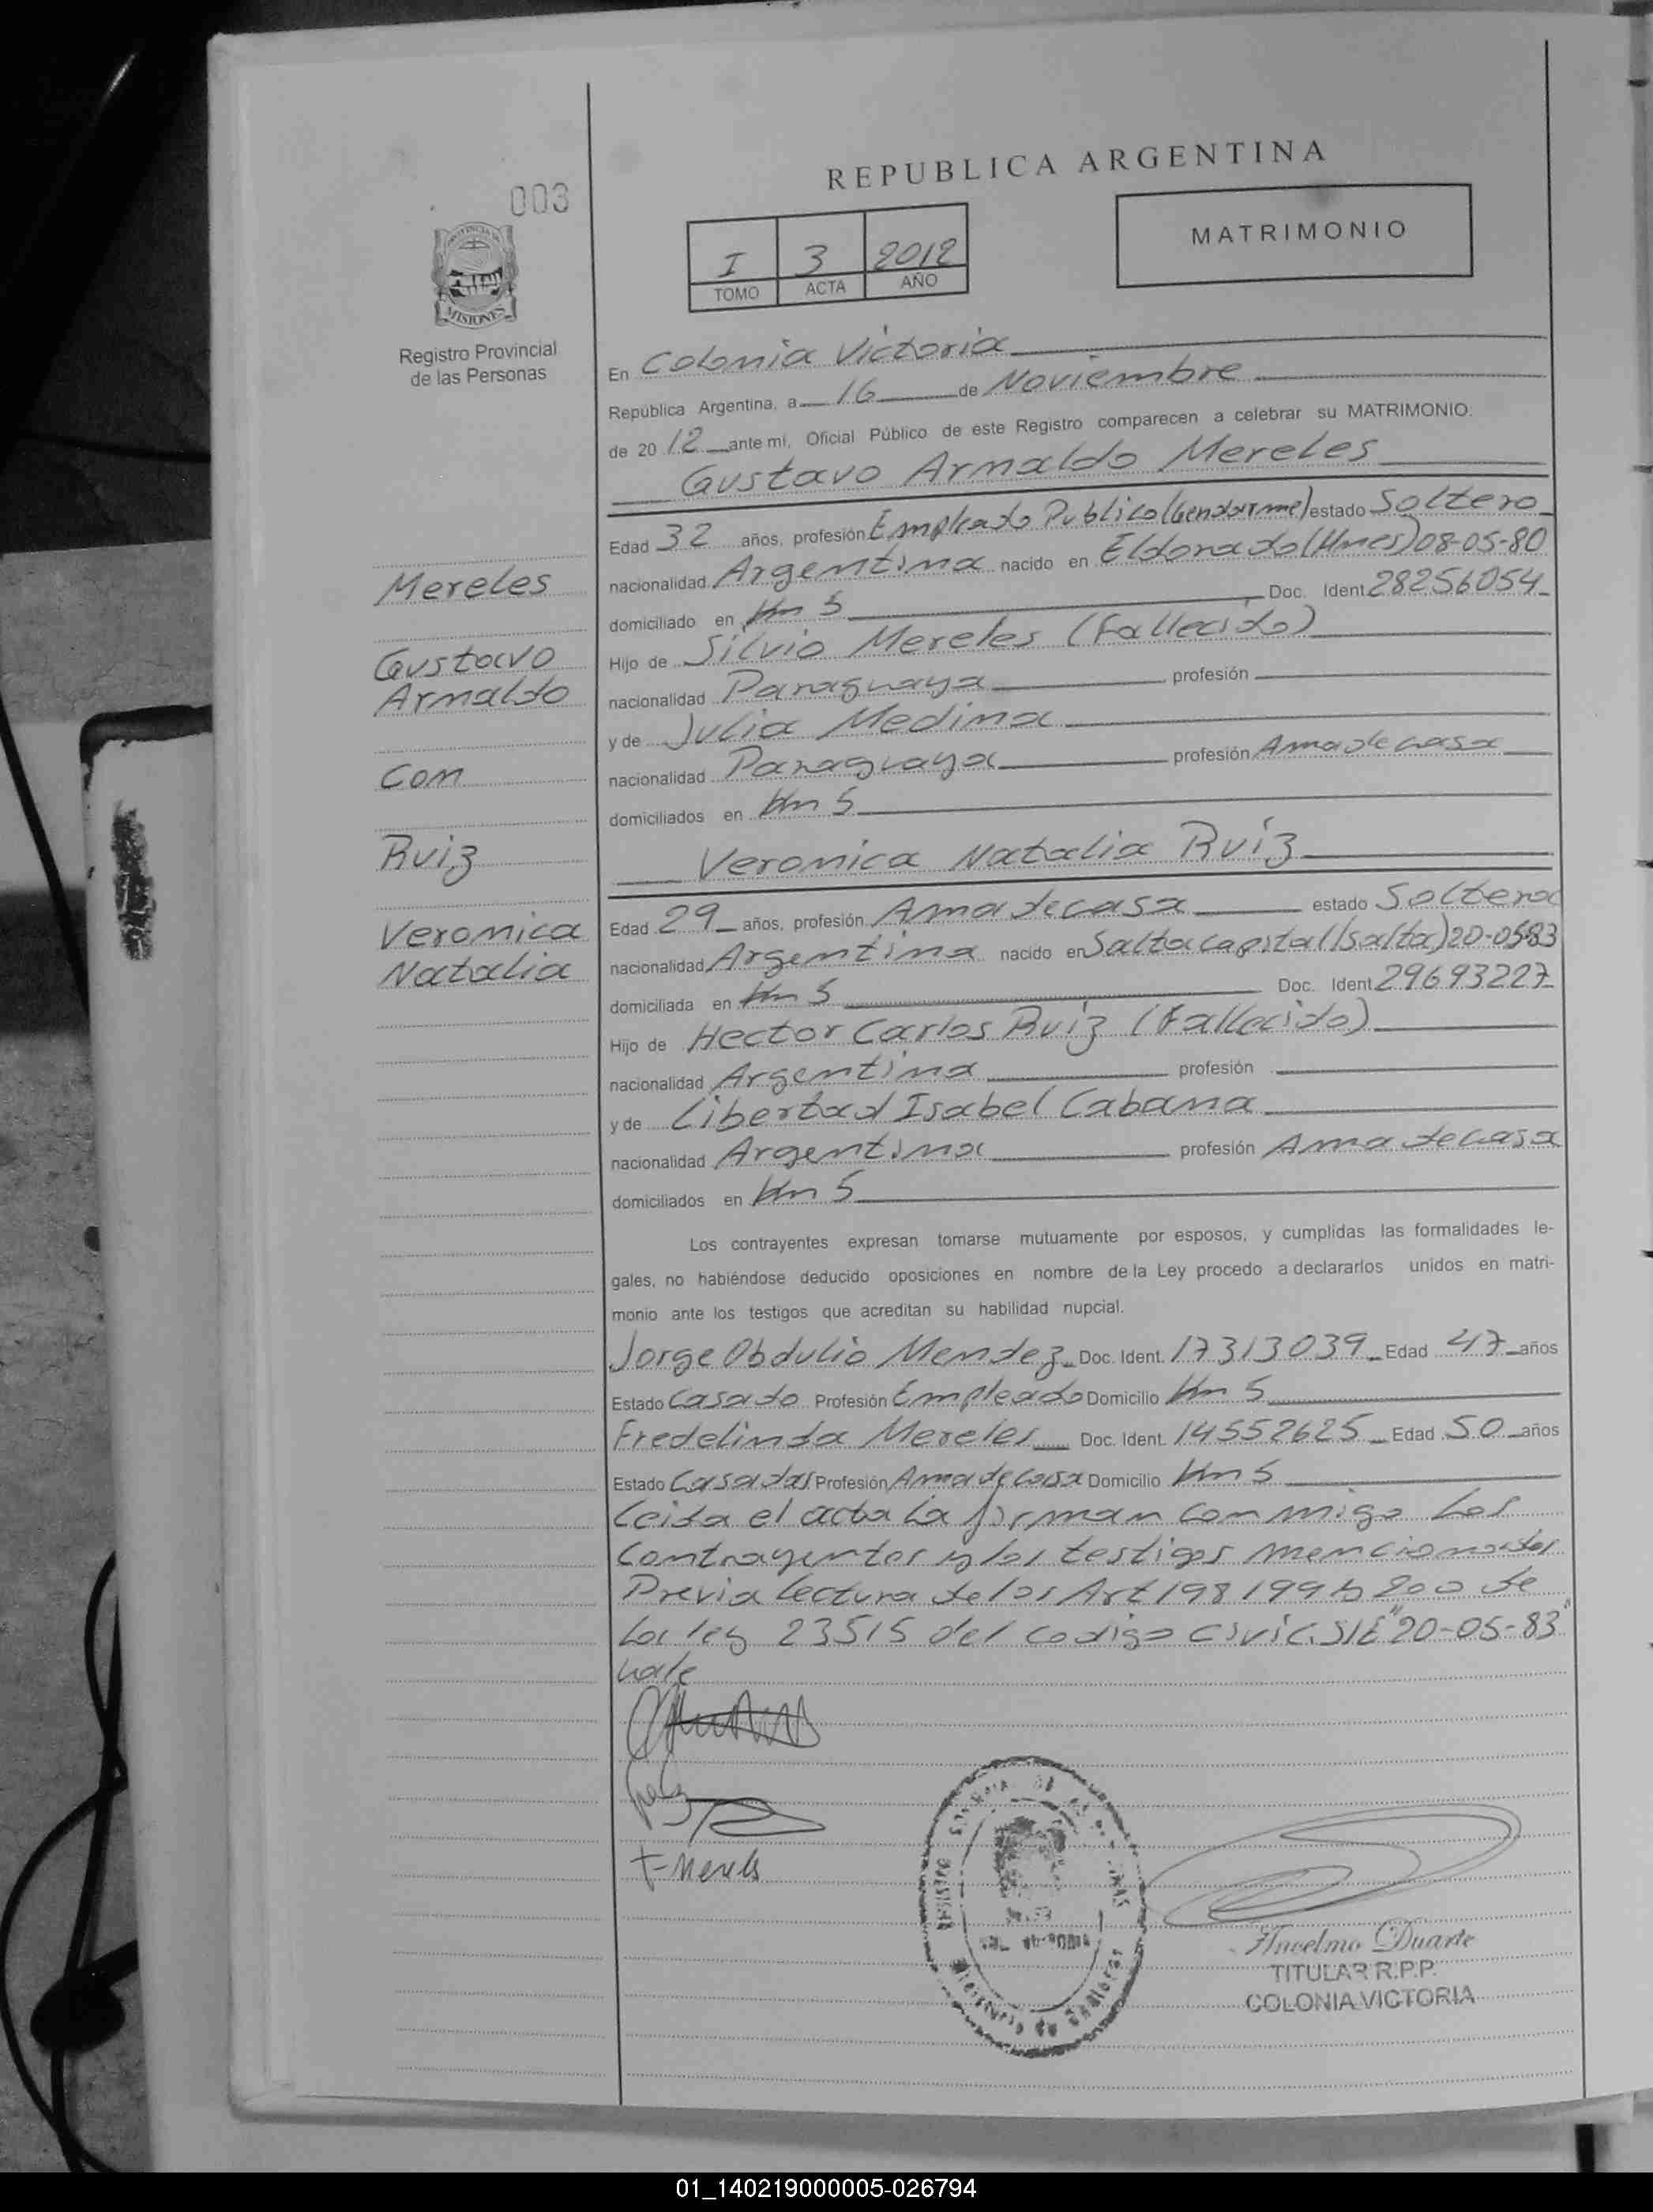 003
REPUBLICA ARGENTINA
MATRIMONIO
I 3 2012
TOMO ACTA AÑO
MISIONES
Registro Provincial
de las Personas
En Colonia Victoria
República Argentina, a 16 de Noviembre
de 2012 ante mí, Oficial Público de este Registro comparecen a celebrar su MATRIMONIO.
Gustavo Arnaldo Mereles
Edad 32 años, profesión Empleado Publico (Gendarme) estado Soltero
nacionalidad Argentina nacido en Eldorado (Mnes) 08-05-80
domiciliado en Km 5 Doc. Ident 28256054
Hijo de Silvio Mereles (Fallecido)
nacionalidad Paraguaya profesión
y de Julia Medina
nacionalidad Paraguaya profesión Ama de casa
domiciliados en Km 5
Veronica Natalia Ruíz
Edad 29 años, profesión Ama de casa estado Soltera
nacionalidad Argentina nacido en Salta capital (Salta) 20-0583
domiciliada en Km 5 Doc. Ident 29693227
Hijo de Hector Carlos Ruíz (Fallecido)
nacionalidad Argentina profesión
y de Libertad Isabel Cabana
nacionalidad Argentina profesión Ama de casa
domiciliados en Km 5
Los contrayentes expresan tomarse mutuamente por esposos, y cumplidas las formalidades le-
gales, no habiéndose deducido oposiciones en nombre de la Ley procedo a declararlos unidos en matri-
monio ante los testigos que acreditan su habilidad nupcial.
Jorge Obdulio Mendez Doc. Ident. 17313039 Edad 47 años
Estado Casado Profesión Empleado Domicilio Km 5
Fredelinda Mereles Doc. Ident. 14552625 Edad 50 años
Estado Casada Profesión Ama de casa Domicilio Km 5
Leida el acta la firman conmigo los
Contrayentes y los testigos mencionados
Previa lectura de los Art 198 199 y 200 de
la ley 23515 del codigo civic. S/E "20-05-83"
vale
Mereles
Gustavo
Arnaldo
Con
Ruiz
Veronica
Natalia
Anselmo Duarte
TITULAR R.P.P.
COLONIA VICTORIA
01_140219000005-026794